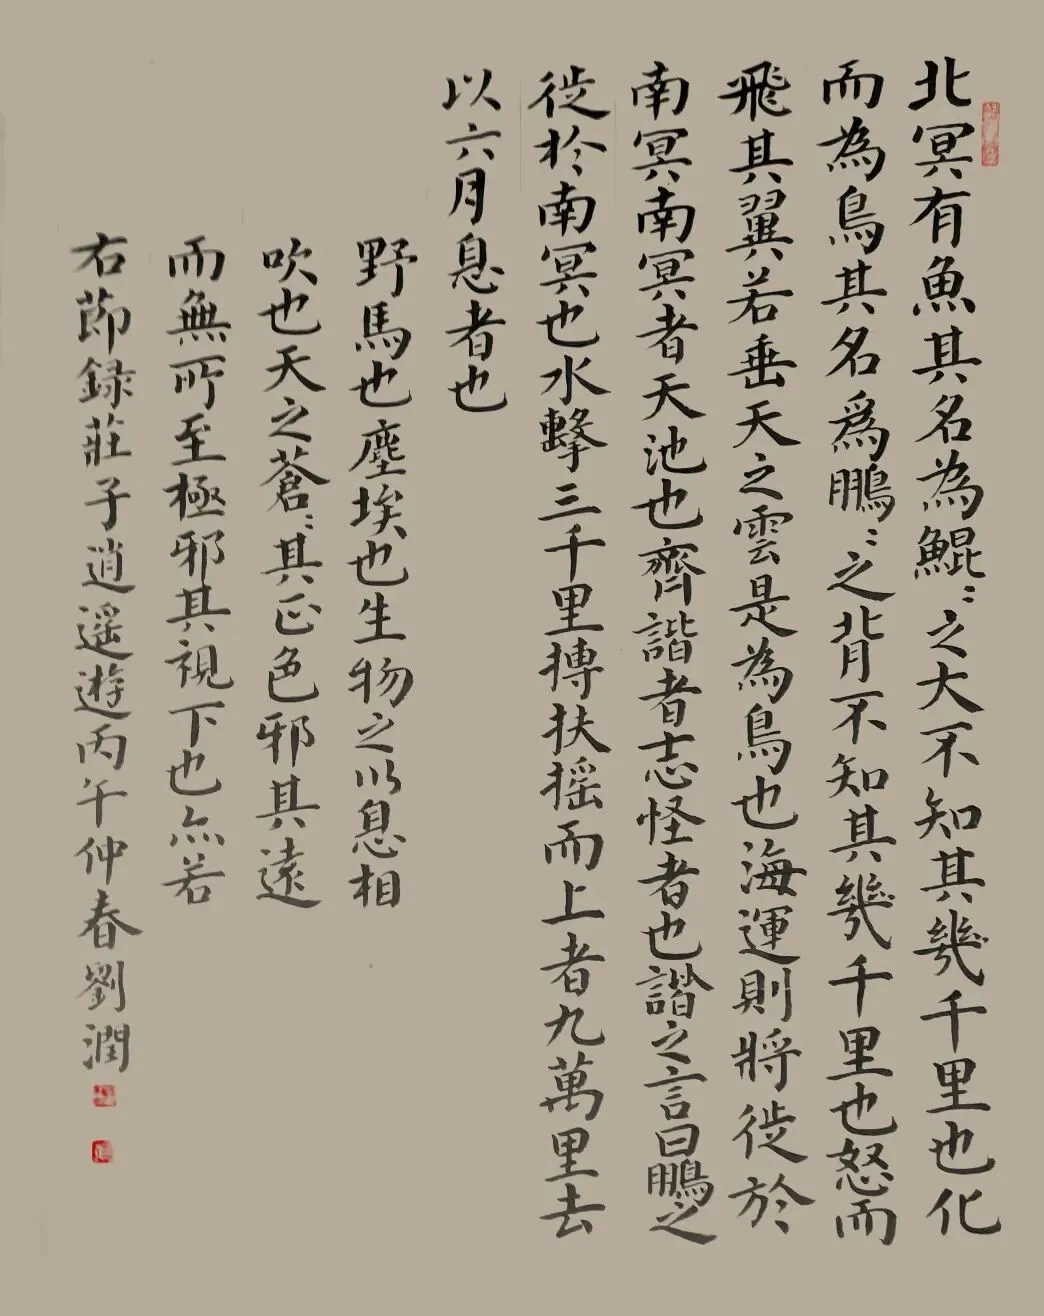 北冥有魚其名為鯤〻之大不知其幾千里也化
而為鳥其名爲鵬〻之背不知其幾千里也怒而
飛其翼若垂天之雲是為鳥也海運則將徙於
南冥南冥者天池也齊諧者志怪者也諧之言曰鵬之
徙於南冥也水擊三千里搏扶摇而上者九萬里去
以六月息者也
野馬也塵埃也生物之以息相
吹也天之蒼〻其正色邪其遠
而無所至極邪其視下也亦若
右節録莊子逍遥遊丙午仲春劉潤